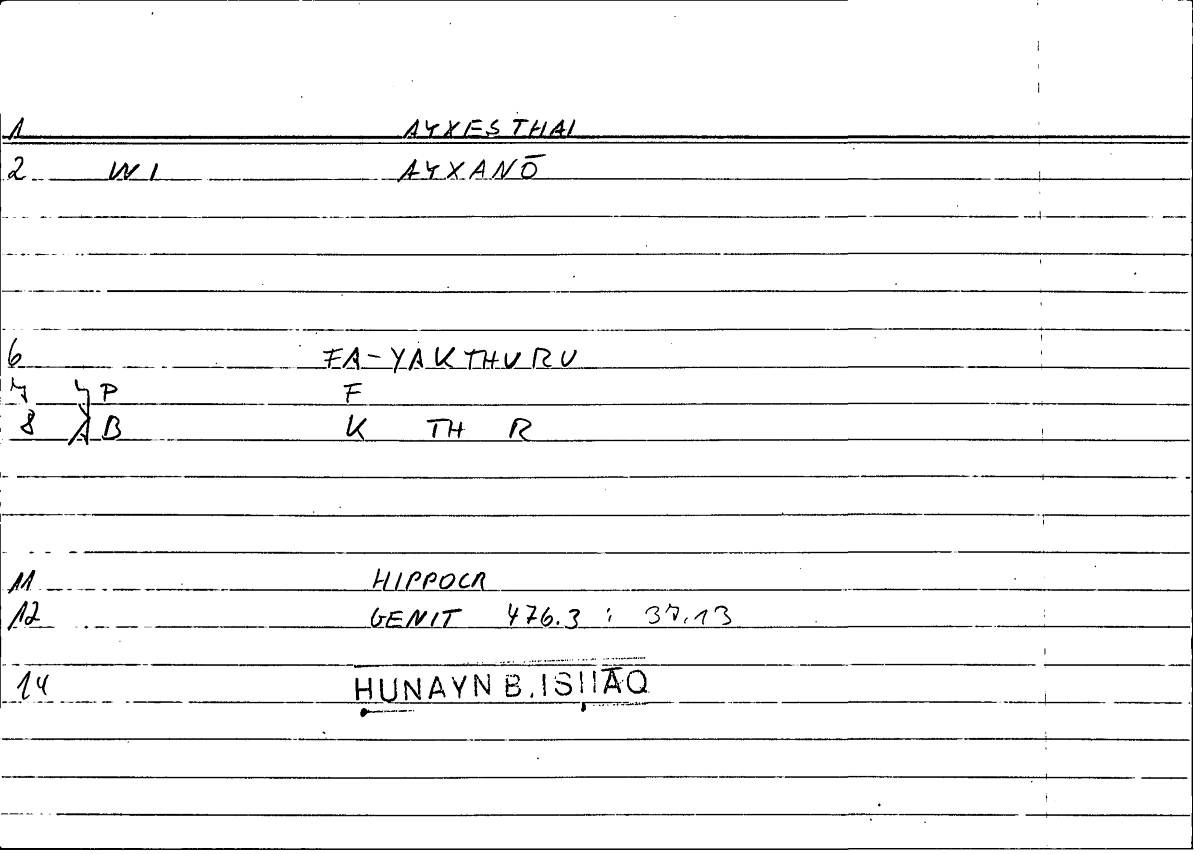 1 AYXESTHAI
2 WI AYXANŌ
6 FA-YAKTHURU
7 P F
8 B K TH R
11 HIPPOCR
12 GENIT 476.3 : 37.13
14 ḤUNAYN B. ISḤĀQ